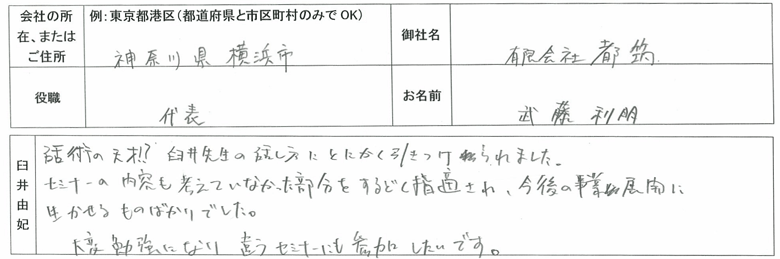 会社の所在、またはご住所
例：東京都港区（都道府県と市区町村のみでOK）
神奈川県 横浜市
御社名
有限会社 都筑
役職
代表
お名前
武藤 利明
臼井由妃
話術の天才!? 臼井先生の話し方にとにかく引きつけられました。
セミナーの内容も考えていなかった部分をするどく指適され、今後の事業展開に
生かせるものばかりでした。
大変勉強になり 違うセミナーにも参加したいです。